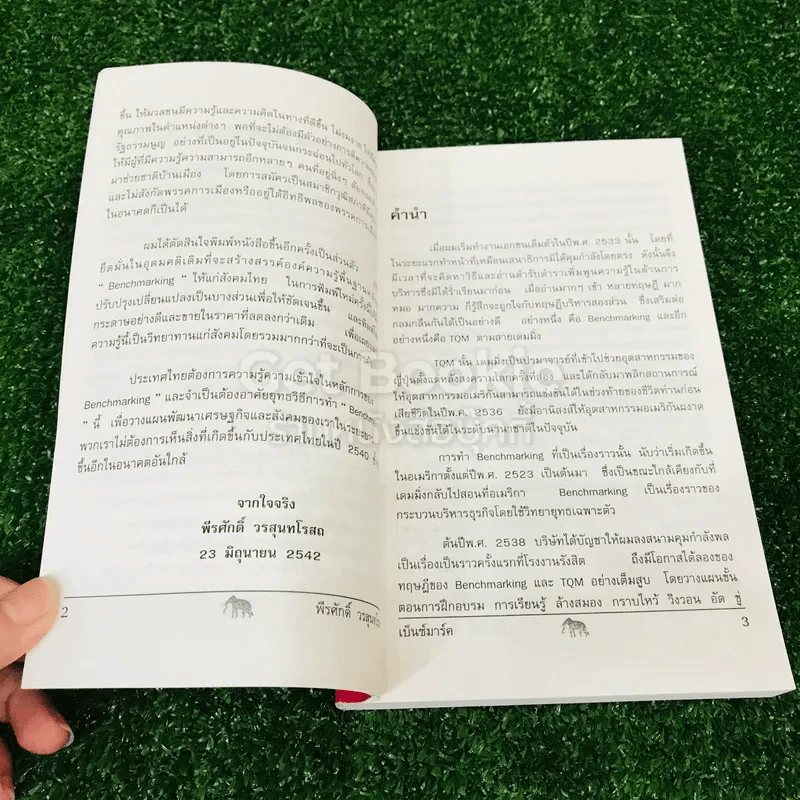 ขึ้น ให้มวลชนมีความรู้และความคิดในทางที่ดีขึ้น ไม่งมงาย
คุณภาพในตำแหน่งต่างๆ พอที่จะไม่ต้องมีตัวอย่างการตีความ
รัฐธรรมนูญ อย่างที่เป็นอยู่ในปัจจุบันจนกระฉ่อนไปทั่วโลก
ให้มีผู้ที่มีความรู้ความสามารถอีกหลายๆ คนที่อยู่นิ่งๆ ต้อง
มาช่วยชาติบ้านเมือง โดยการสมัครเป็นสมาชิกวุฒิสภา
และไม่สังกัดพรรคการเมืองหรืออยู่ใต้อิทธิพลของพรรคการเมือง
ในอนาคตก็เป็นได้
ผมได้ตัดสินใจพิมพ์หนังสือขึ้นอีกครั้งเป็นส่วนตัว
ยึดมั่นในอุดมคติเดิมที่จะสร้างสรรค์องค์ความรู้พื้นฐาน
" Benchmarking " ให้แก่สังคมไทย ในการพิมพ์ใหม่ครั้งนี้
ปรับปรุงเปลี่ยนแปลงเป็นบางส่วนเพื่อให้ชัดเจนขึ้น
กระดาษอย่างดีและขายในราคาที่ลดลงกว่าเดิม
ความรู้นี้เป็นวิทยาทานแก่สังคมโดยรวมมากกว่าที่จะเป็นการค้า
ประเทศไทยต้องการความรู้ความเข้าใจในหลักการของ
Benchmarking " และจำเป็นต้องอาศัยยุทธวิธีการทำ "
" นี้ เพื่อวางแผนพัฒนาเศรษฐกิจและสังคมของเราในระยะยาว
พวกเราไม่ต้องการเห็นสิ่งที่เกิดขึ้นกับประเทศไทยในปี 2540
ขึ้นอีกในอนาคตอันใกล้
จากใจจริง
พีรศักดิ์ วรสุนทโรสถ
23 มิถุนายน 2542
2 พีรศักดิ์
คำนำ
เมื่อผมเริ่มทำงานเอกชนเต็มตัวในปีพ.ศ. 2533 นั้น โดยที่
ในระยะแรกทำหน้าที่เหมือนเสนาธิการมิได้คุมกำลังโดยตรง ดังนั้นจึง
มีเวลาที่จะคิดหาวิธีและอ่านตำรับตำราเพิ่มพูนความรู้ในด้านการ
บริหารซึ่งมิได้ร่ำเรียนมาก่อน เมื่ออ่านมากๆ เข้า หลายทฤษฎี มาก
หมอ มากความ ก็รู้สึกจะถูกใจกับทฤษฎีบริหารสองส่วน ซึ่งเสริมต่อ
กลมกลืนกันได้เป็นอย่างดี อย่างหนึ่ง คือ Benchmarking และอีก
อย่างหนึ่งคือ TQM ตามสายเดมมิ่ง
TQM นั้น เดมมิ่งเป็นปรมาจารย์ที่เข้าไปช่วยอุตสาหกรรมของ
ญี่ปุ่นตั้งแต่หลังสงครามโลกครั้งที่สอง และได้กลับมาพลิกสถานการณ์
ให้อุตสาหกรรมอเมริกันสามารถแข่งขันได้ในช่วงท้ายของชีวิตท่านก่อน
เสียชีวิตในปีพ.ศ. 2536 ยังมีอานิสงส์ให้อุตสาหกรรมอเมริกันผงาด
ขึ้นแข่งขันได้ในระดับนานาชาติในปัจจุบัน
การทำ Benchmarking ที่เป็นเรื่องราวนั้น นับว่าเริ่มเกิดขึ้น
ในอเมริกาตั้งแต่ปีพ.ศ. 2523 เป็นต้นมา ซึ่งเป็นขณะใกล้เคียงกับที่
เดมมิ่งกลับไปสอนที่อเมริกา Benchmarking เป็นเรื่องราวของ
กระบวนบริหารธุรกิจโดยใช้วิทยายุทธเฉพาะตัว
ต้นปีพ.ศ. 2538 บริษัทได้บัญชาให้ผมลงสนามคุมกำลังพล
เป็นเรื่องเป็นราวครั้งแรกที่โรงงานรังสิต ถึงมีโอกาสได้ลองของ
ทฤษฎีของ Benchmarking และ TQM อย่างเต็มสูบ โดยวางแผนขั้น
ตอนการฝึกอบรม การเรียนรู้ ล้างสมอง กราบไหว้ วิงวอน อัด ขู่
เบ็นช์มาร์ค 3
Get Bookie